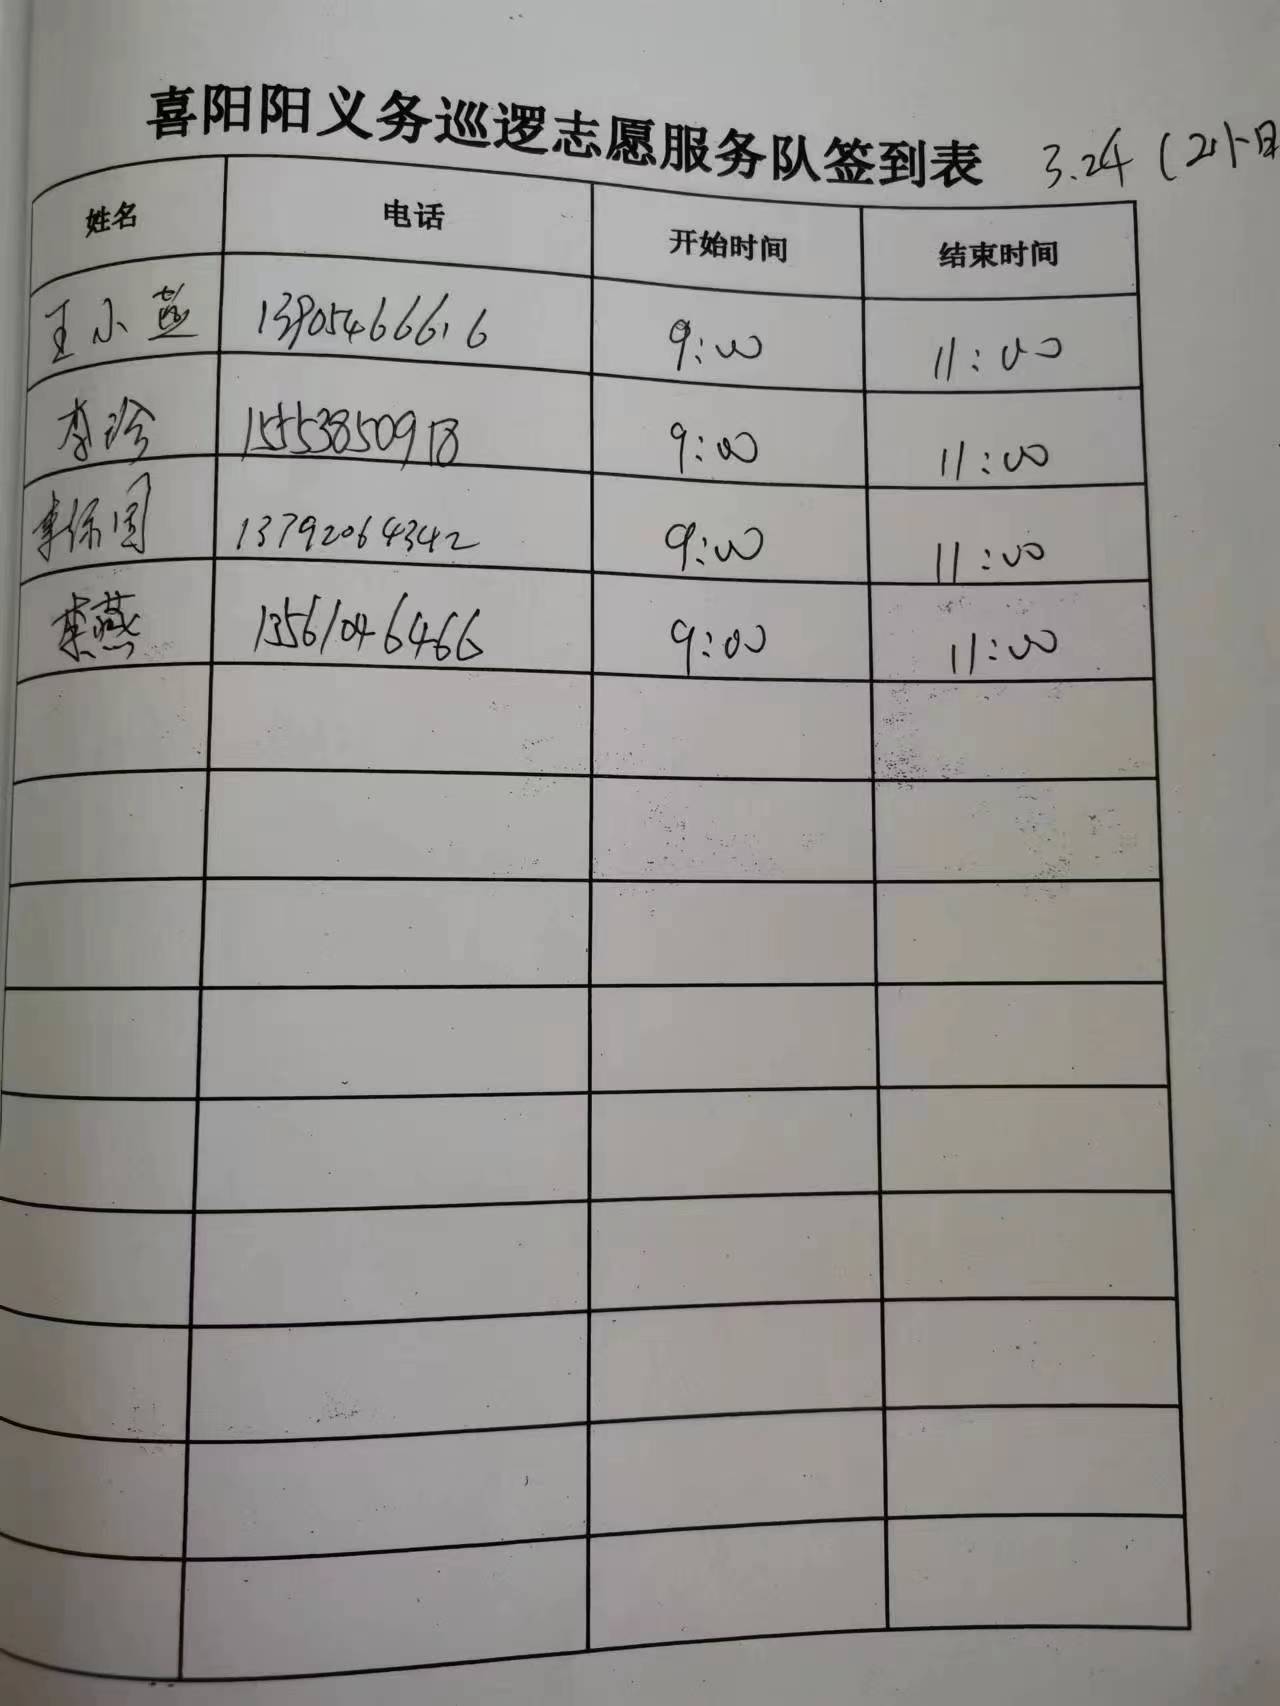 喜阳阳义务巡逻志愿服务队签到表 3.24（2小时
姓名 电话 开始时间 结束时间
王小燕 13905466616 9:00 11:00
李珍 15553850918 9:00 11:00
李保国 13792064342 9:00 11:00
燕 13561046466 9:00 11:00